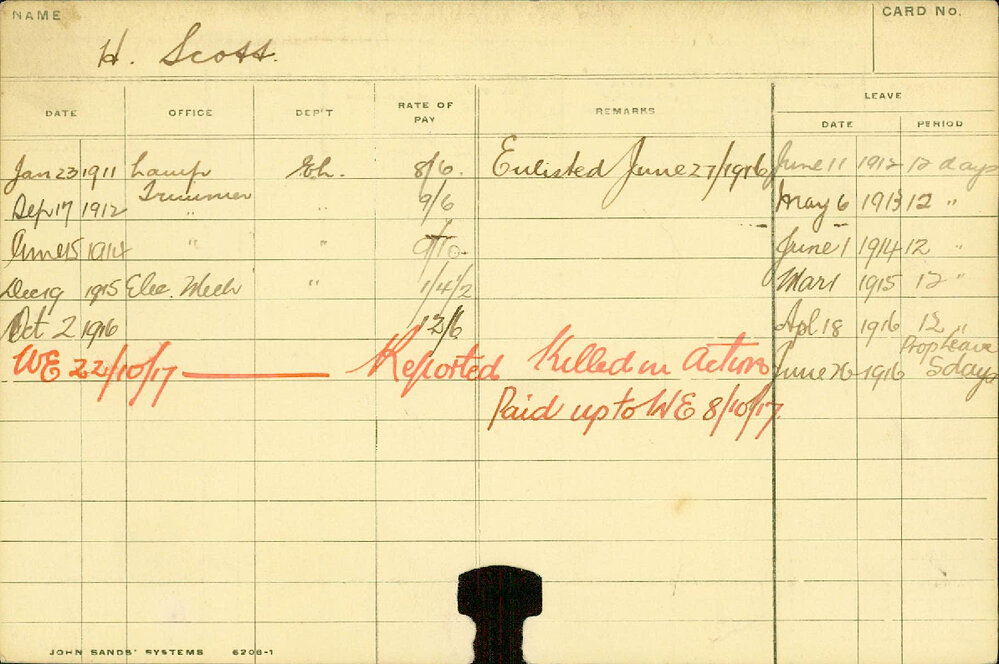 NAME
CARD No.
H. Scott.
DATE OFFICE DEP'T RATE OF PAY REMARKS LEAVE
DATE PERIOD
Jan 23 1911 Lamp El. 8/6. Enlisted June 27/1916 June 11 1912 12 days
Sep 17 1912 Trimmer " 9/6 May 6 1913 12 "
15 1914 " " 9/10. June 1 1914 12 "
Dec 19 1915 Elec. Mech " 1/4/2 Mar 1 1915 12 "
Oct 2 1916 12/6 Apl 18 1916 12 "
Prop Leave
WE 22/10/17 Reported Killed in Action June 26 1916 5 days
Paid up to WE 8/10/17.
JOHN SANDS' SYSTEMS 6206-1